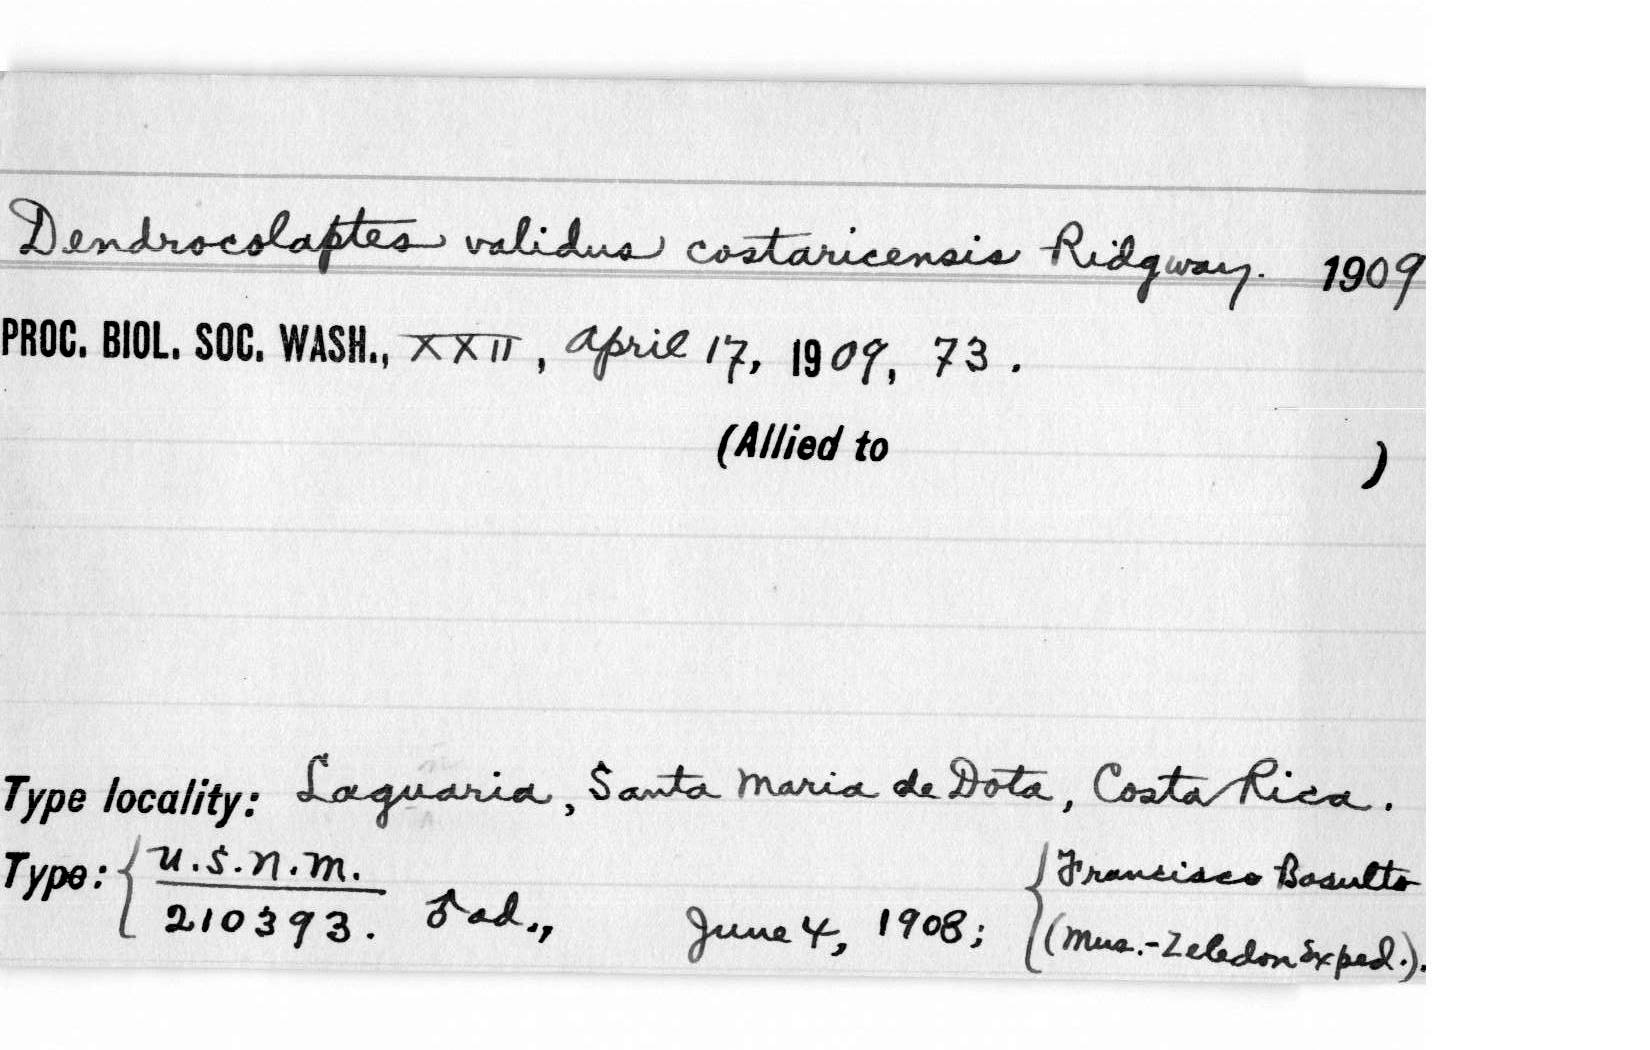 Dendrocolaptes validus costaricensis Ridgway. 1909
PROC. BIOL. SOC. WASH., XXII, April 17, 1909, 73.
(Allied to )
Type locality: Laguaria, Santa Maria de Dota, Costa Rica.
Type: { U.S.N.M. 
210393. ♂ ad., June 4, 1908; { Francisco Basulto
(Mus.-Zeledon Exped.).